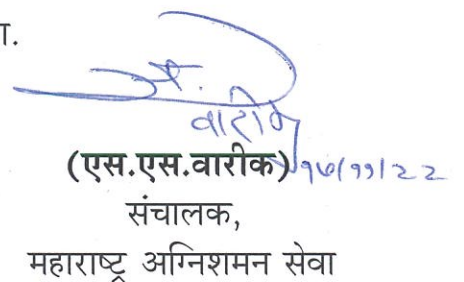 ा.
वारीक
(एस.एस.वारीक) १७/११/२२
संचालक,
महाराष्ट्र अग्निशमन सेवा